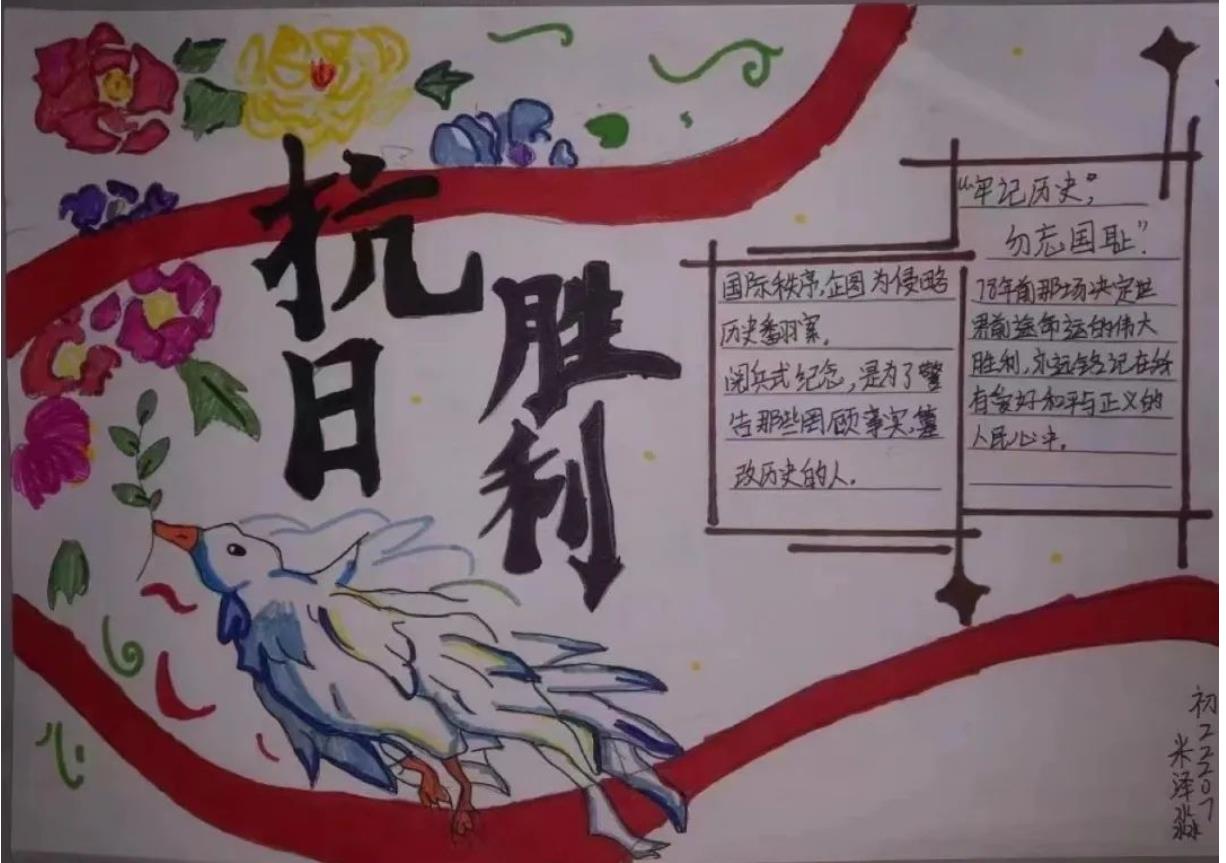 抗日
胜利
“牢记历史，
勿忘国耻”.
国际秩序,企图为侵略
历史翻案.
阅兵式纪念，是为了警
告那些罔顾事实,篡
改历史的人.
78年前那场决定世
界前途命运的伟大
胜利,永远铭记在所
有爱好和平与正义的
人民心中.
初22207
米泽淼